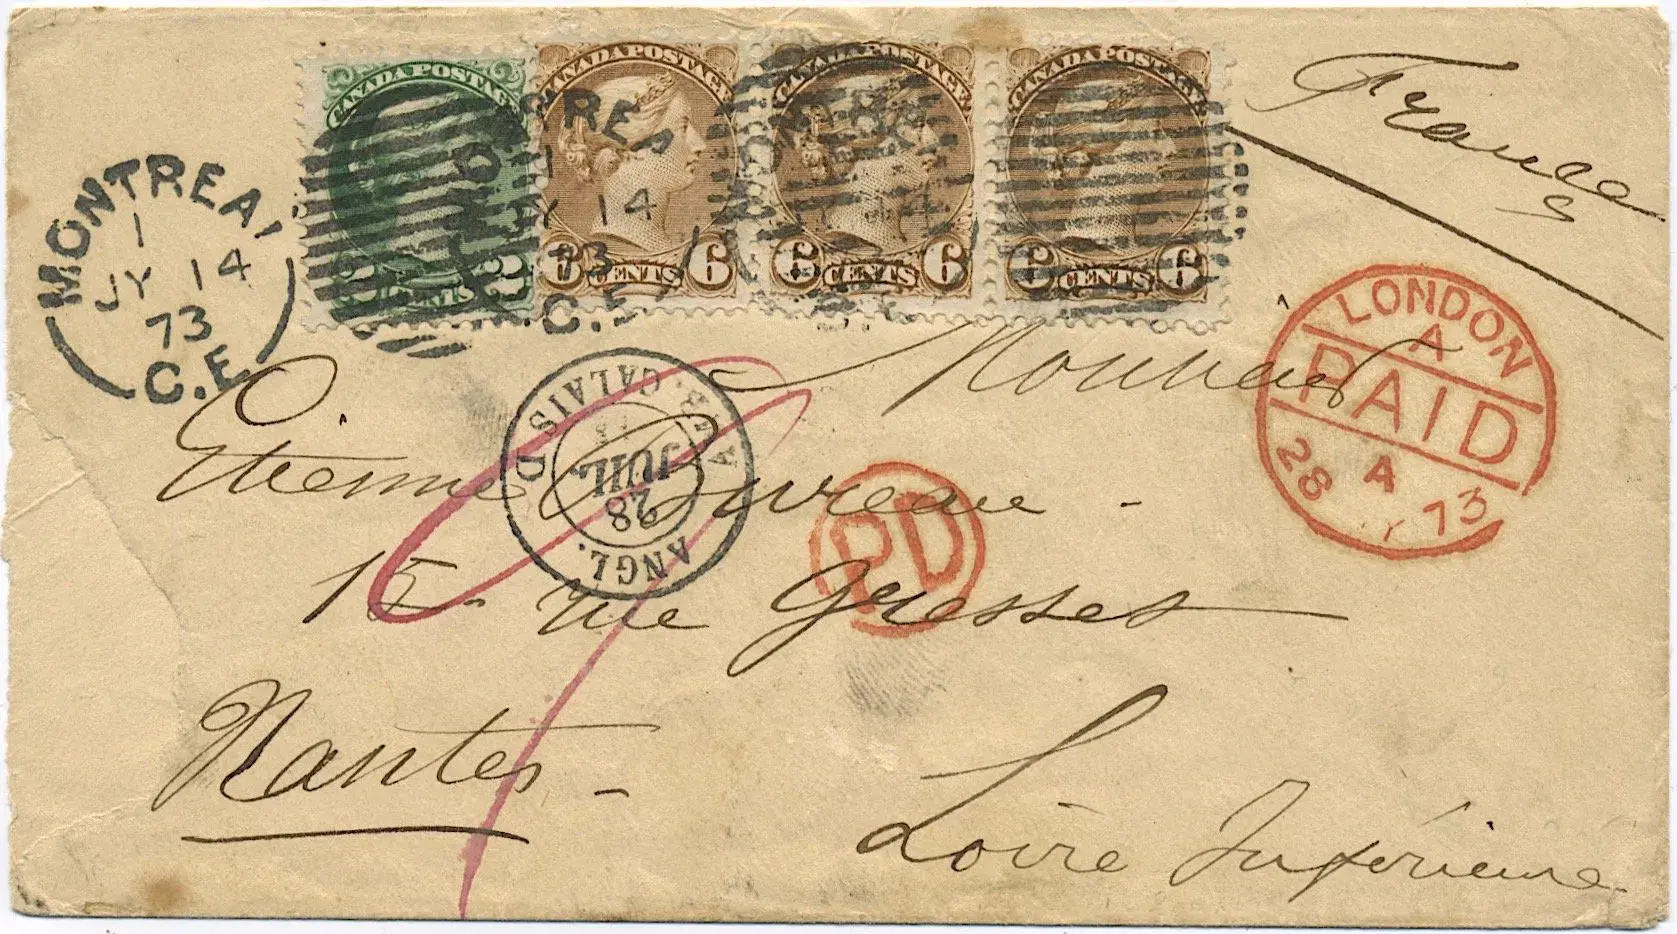 CANADA POSTAGE
2 CENTS 2
CANADA POSTAGE
6 CENTS 6
CANADA POSTAGE
6 CENTS 6
CANADA POSTAGE
6 CENTS 6
France
MONTREAL
1
JY 14
73
C.E.
MONTREAL
1
JY 14
73
C.E.
LONDON
A
PAID
A
28 JY 73
ANGL.
28
JUIL.
CALAIS D
PD
Monsieur
Etienne Bureau
15 rue Gresset
Nantes
Loire Inférieure